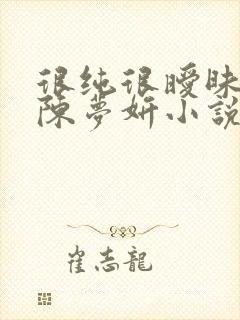 很纯很曖昧
陳夢妍小説
崔志龍